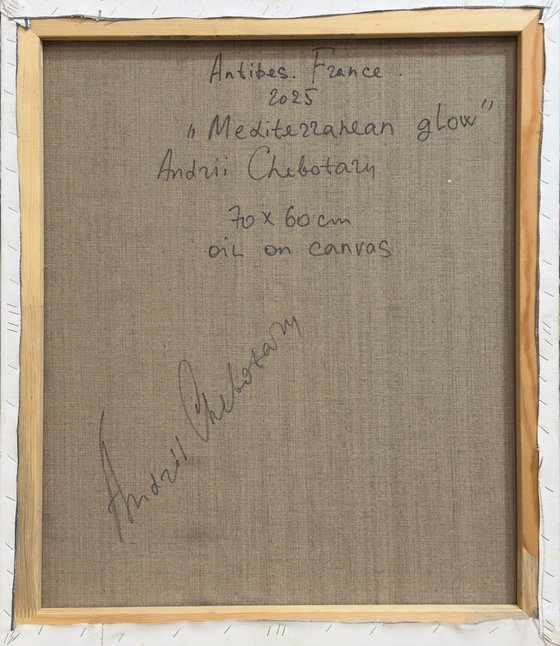 Antibes. France.
2025
„Mediterranean glow"
Andrii Chebotaru
70 x 60 cm
oil on canvas
Andrii Chebotaru